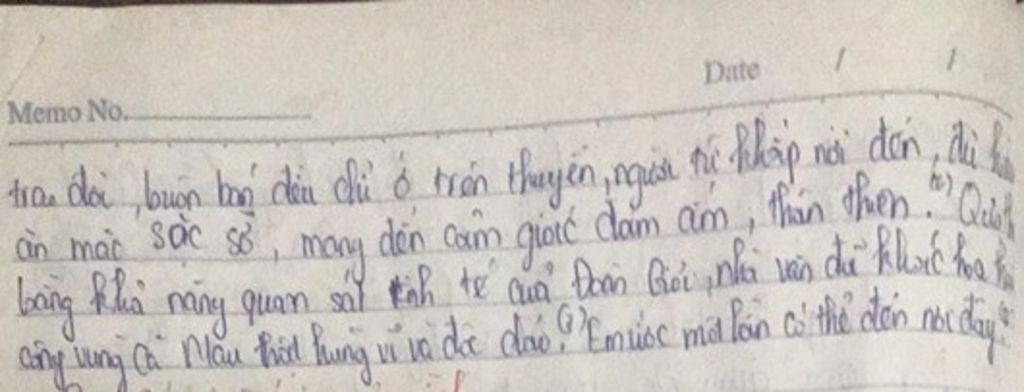 Date / /
Memo No.
trao đổi, buôn bán đều chỉ ở trên thuyền, người từ khắp nơi đến, đủ
ăn mặc sặc sỡ, mang đến cảm giác đầm ấm, thân thiện. (2) Qua
bằng khả năng quan sát tinh tế của Đoàn Giỏi, nhà văn đã khắc họa
cùng vùng Cà Mau thật hùng vĩ và độc đáo. (3) Em ước một lần có thể đến nơi đây.